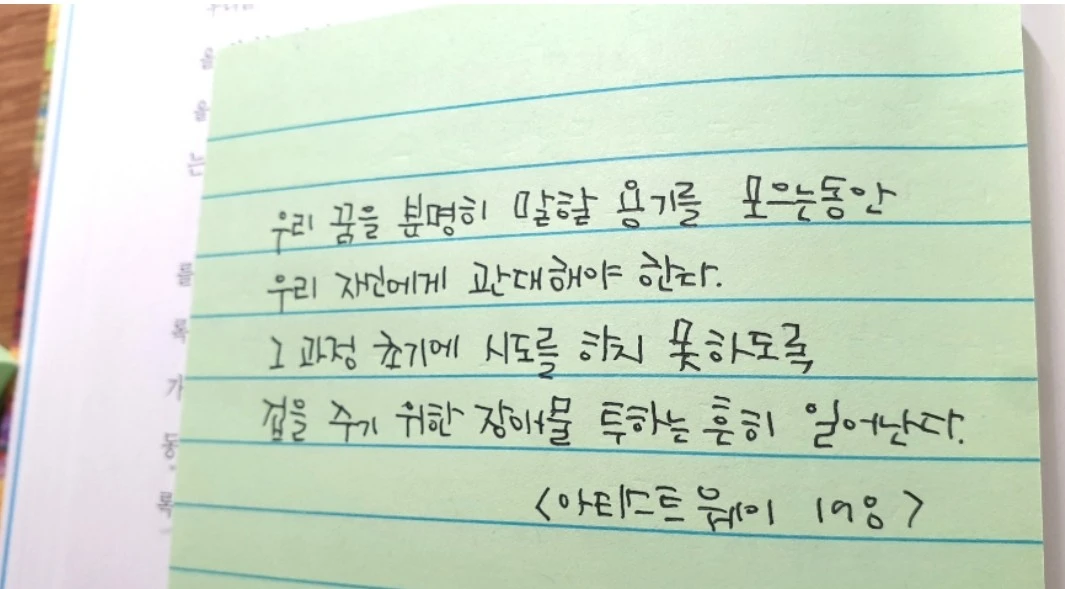 우리 꿈을 분명히 말할 용기를 모으는동안
우리 자신에게 관대해야 한다.
그 과정 초기에 시도를 하지 못하도록
겁을 주기 위한 장애물 투하는 흔히 일어난다.
<아티스트 웨이 198>
을
을
는
를
록
가
동
록